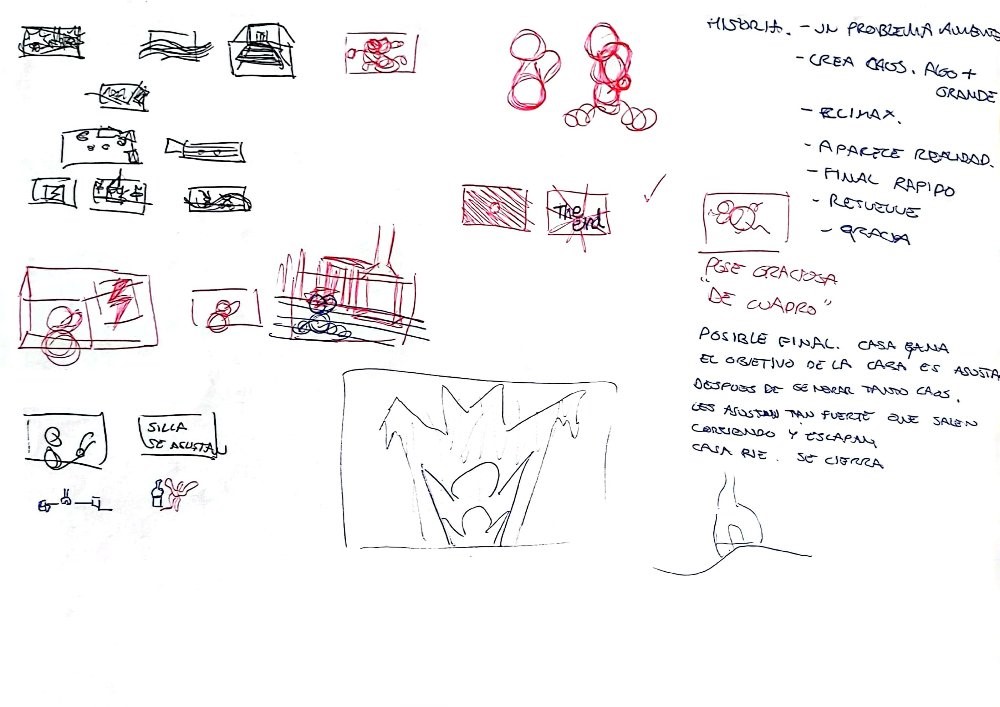 HISTORIA. - UN PROBLEMA AUMENTA
- CREA CAOS. ALGO +
GRANDE
- CLIMAX.
- APARECE REALIDAD.
- FINAL RAPIDO
- RESUELVE
- GRACIA
The
end
POSE GRACIOSA
"DE CUADRO"
POSIBLE FINAL. CASA GANA
EL OBJETIVO DE LA CASA ES ASUSTA
DESPUES DE GENERAR TANTO CAOS.
LES ASUSTAN TAN FUERTE QUE SALEN
CORRIENDO Y ESCAPAN
CASA RIE. SE CIERRA
SILLA
SE ASUSTA